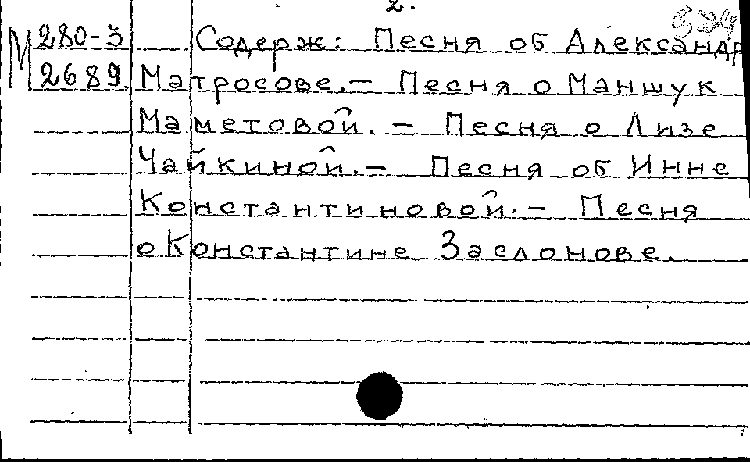 2.
М 280-3 Содерж: Песня об Александр
2689 Матросове.– Песня о Маншук
Маметовой. – Песня о Лизе
Чайкиной.– Песня об Инне
Константиновой.– Песня
о Константине Заслонове.